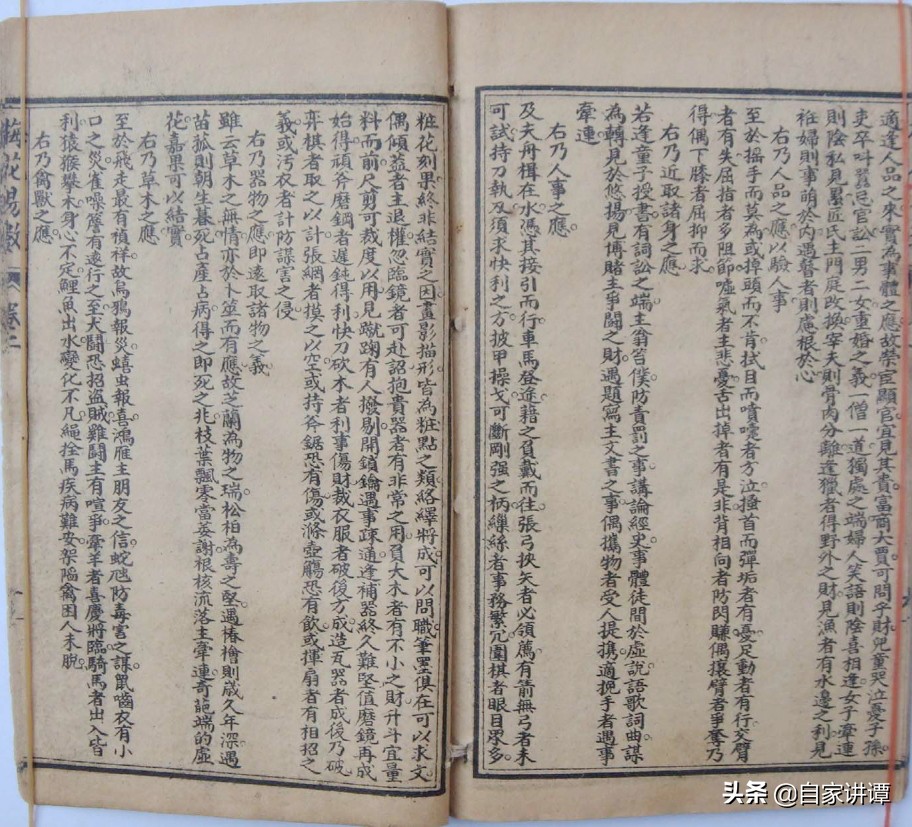 適逢人品之來實為事體之應故榮宦顯官宜見其貴富商大賈可問乎財兒童哭泣憂子孫
吏卒叫囂忌官訟二男二女重婚之義一僧一道獨處之端婦人笑語則陰喜相逢女子牽連
則陰私見累匠氏主門庭改換宰夫則骨肉分離逢獵者得野外之財見漁者有水邊之利見
妊婦則事萌於內遇瞽者則慮根於心
右乃人品之應以驗人事
至於搖手而莫為或掉頭而不肯拭目而噴嚏者方泣搔首而彈垢者有憂足動者有行交臂
者有失屈指者多阻節噓氣者主悲憂舌出掉者有是非背相向者防閃賺偶攘臂者爭奪乃
得偶下膝者屈抑而求
右乃近取諸身之應
若逢童子授書有詞訟之端主翁笞僕防責罰之事講論經史事體徒間於虛說語歌詞曲謀
為轉見於悠揚見博賭主爭鬪之財遇題寫主文書之事偶攜物者受人提携適挽手者遇事
牽連
右乃人事之應
及夫舟楫在水憑其接引而行車馬登途藉之負戴而往張弓挾矢者必領薦有箭無弓者未
可試持刀執刃須求快利之方披甲操戈可斷剛强之柄繅絲者事務繁冗圍棋者眼目眾多
粧花刻果終非結實之因畫影描形皆為粧點之類絡繹將成可以問職筆墨俱在可以求文
偶傾蓋者主退權忽臨鏡者可赴詔抱貴器者有非常之用負大木者有不小之財升斗宜量
料而前尺剪可裁度以用見蹴踘有人撥剔開鎖鑰遇事疎通逢補器終久難堅值磨鏡再成
始得頑斧磨鋼者遲鈍得利快刀砍木者利事傷財裁衣服者破後方成造瓦器者成後乃破
弈棋者取之以計張網者摸之以空或持斧鋸恐有傷或滌壺觴恐有飲或揮扇者有相招之
義或污衣者計防謀害之侵
右乃器物之應即遠取諸物之義
雖云草木之無情亦於卜筮而有應故芝蘭為物之瑞松柏為壽之堅遇椿檜則歲久年深遇
苗孤則朝生暮死占產占病得之即死之兆枝葉飄零當萎謝根核流落主牽連奇葩端的虛
花嘉果可以結實
右乃草木之應
至於飛走最有禎祥故烏鴉報災蟢虫報喜鴻雁主朋友之信蛇虺防毒害之謀鼠嚙衣有小
口之災雀噪簷有遠行之至犬鬪恐招盜賊雞鬪主有喧爭牽羊者喜慶將臨騎馬者出入皆
利猿猴攀木身心不定鯉魚出水變化不凡繩拴馬疾病難安架陷禽囚人未脱
右乃禽獸之應
梅花易數 卷二
头条 @自家讲谭